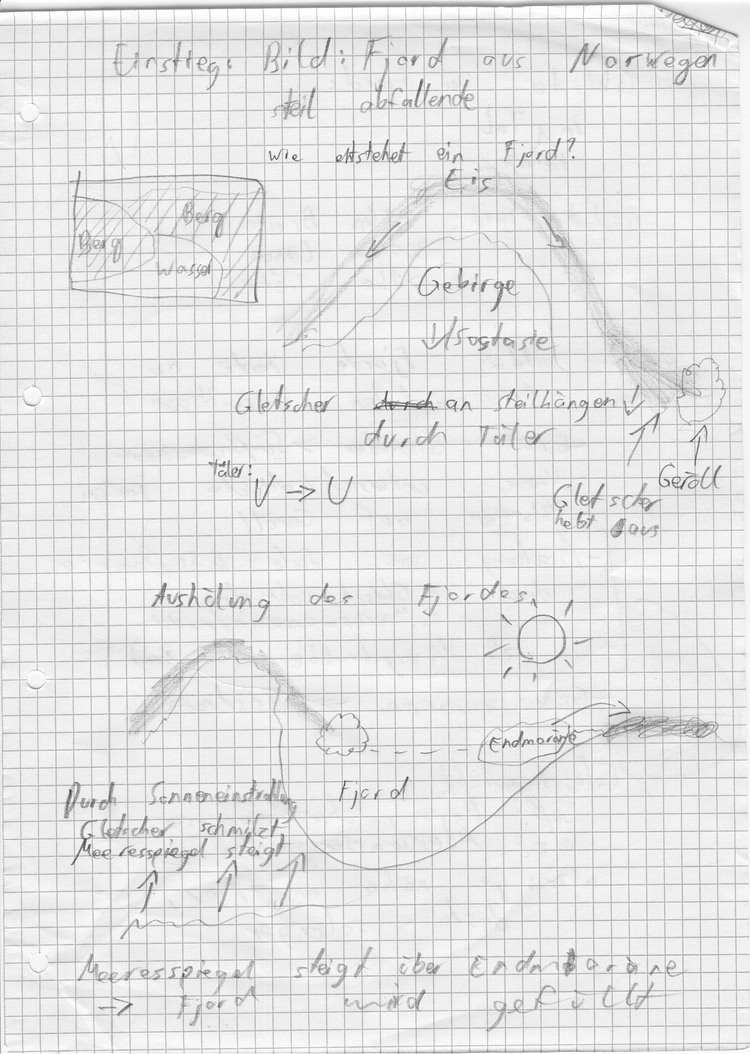 Einstieg: Bild: Fjord aus Norwegen
steil abfallende
wie entstehet ein Fjord?
Eis
Berg
Berg
Wasser
Gebirge
↓Isostasie
Gletscher an steilhängen!
durch Täler
Geröll
Täler:
V → U
Gletscher
hebt aus
Aushölung des Fjordes
Endmoräne
Fjord
Durch Sonneneinstrahlung
Gletscher schmilzt
Meeresspiegel steigt
Meeresspiegel steigt über Endmoräne
→ Fjord wird gefüllt